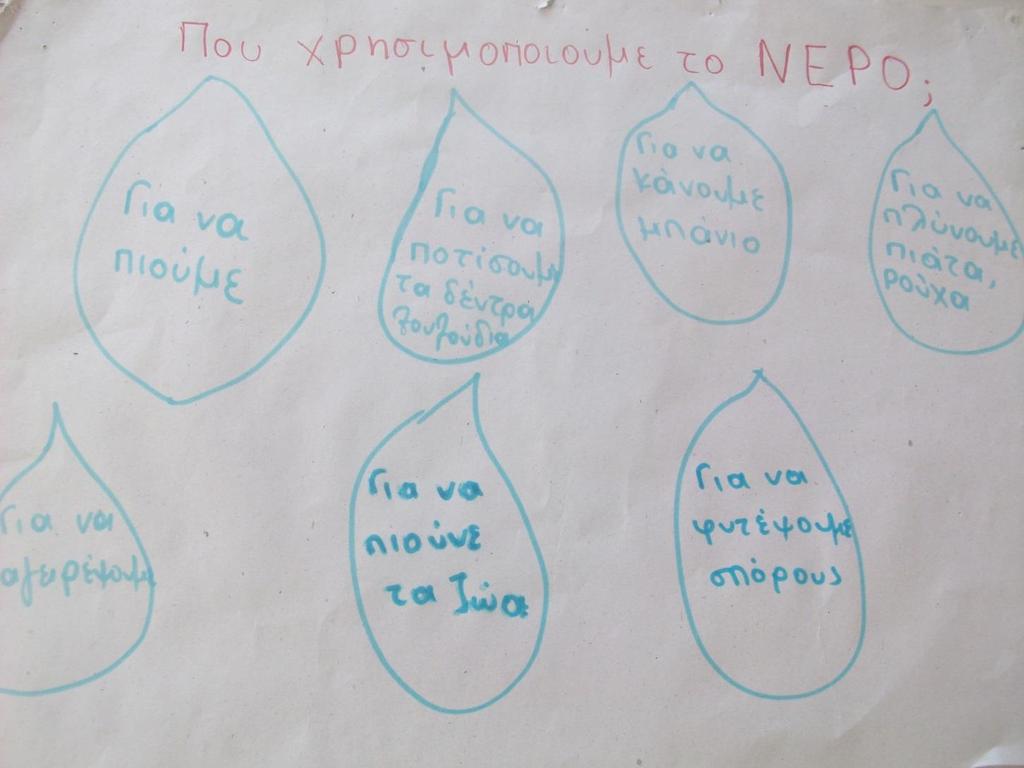 Που χρησιμοποιουμε το ΝΕΡΟ;
Για να
πιούμε
Για να
ποτίσουμε
τα δέντρα
λουλούδια
Για να
κάνουμε
μπάνιο
Για να
πλύνουμε
πιάτα,
ρούχα
Για να
αγειρέψουμε
Για να
πιούνε
τα ζώα
Για να
φυτέψουμε
σπόρους